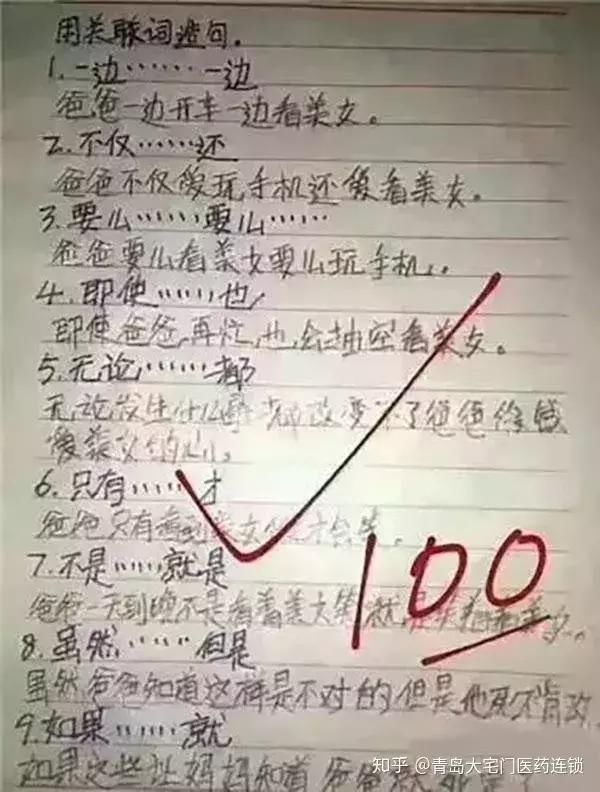 用关联词造句。
1.一边……一边
爸爸一边开车一边看美女。
2.不仅……还
爸爸不仅爱玩手机还爱看美女。
3.要么……要么……
爸爸要么看美女要么玩手机。
4.即使……也
即使爸爸再忙,也会抽空看美女。
5.无论……都
无论发生什么事都改变不了爸爸
爱美女的心。
6.只有……才
爸爸只有看到美女才会笑。
7.不是……就是
爸爸一天到晚不是看着美女笑,就是
8.虽然……但是
虽然爸爸知道这样是不对的但是他死不肯改。
9.如果……就
如果这些让妈妈知道爸爸就死定了
100
知乎 @青岛大宅门医药连锁